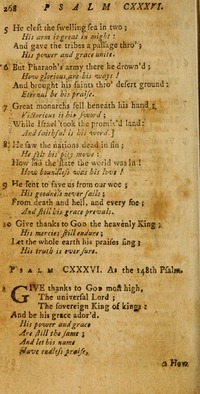 268 PSALM CXXXVI.
5 He cleft the swelling sea in two;
His arm is great in might:
And gave the tribes a passage thro';
His power and grace unite.
6 But Pharaoh's army there he drown'd;
How glorious are his ways!
And brought his saints thro' desert ground:
Eternal be his praise.
7 Great monarchs fell beneath his hand;
Victorious is his sword;
While Israel took the promis'd land:
And faithful is his word.]
8 He saw the nations dead in sin;
He felt his pity move:
How sad the state the world was in!
How boundless was his love!
9 He sent to save us from our woe;
His goodness never fails;
From death and hell, and every foe;
And still his grace prevails.
10 Give thanks to God the heavenly King;
His mercies still endure;
Let the whole earth his praises sing;
His truth is ever sure.
PSALM CXXXVI. As the 148th Psalm.
GIVE thanks to God most high,
The universal Lord;
The sovereign King of kings:
And be his grace ador'd.
His power and grace
Are still the same;
And let his name
Have endless praise.
2 How